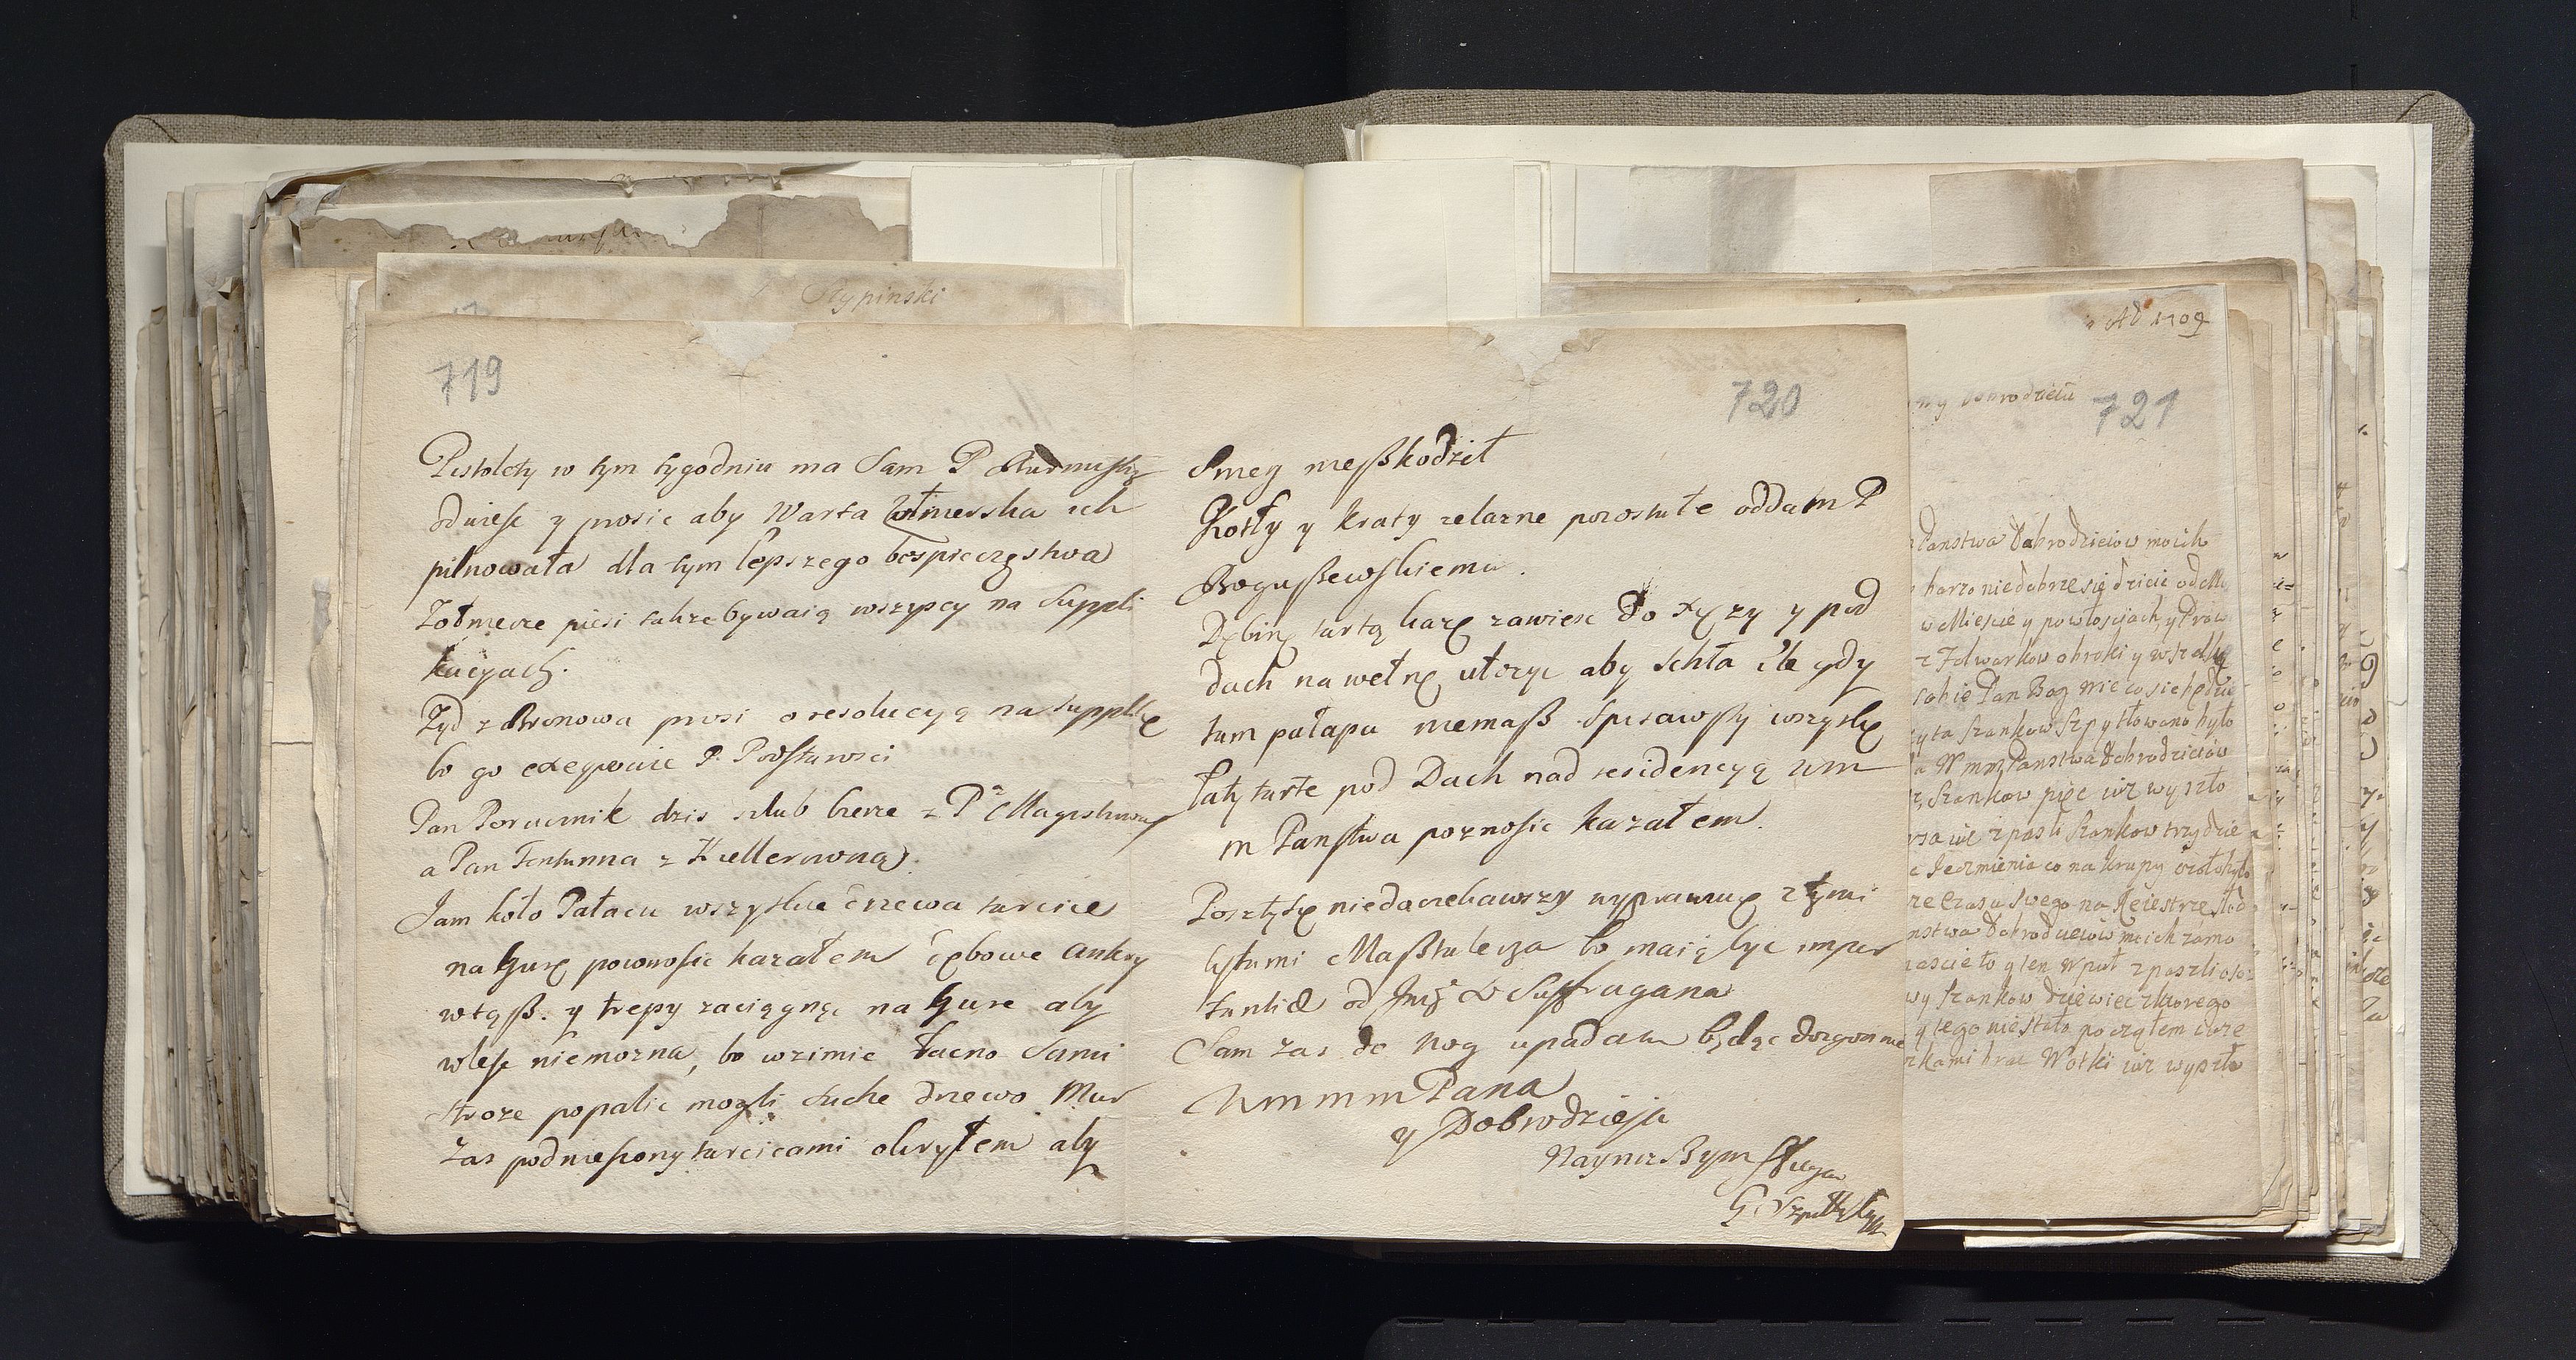 Stypinski
719
Pistolety w tym tygodniu ma Sam P
odniesc y prosic aby Warta Zołnierska ich
pilnowała dla tym lepszego bespieczęstwa
Zołnierze piesi takze bywaią wszyscy na Suppli
kacyach.
Zyd z Bronowa prosi o resolucyą na Supplikę
bo go exequuie P. Podstarosci
Pan Porucznik dzis szlub bierze z
a Pan z Kellerowną.
Jam koło Pałacu wszystkie drzewa tarcice
na Gurę pownosic kazałem dębowe ankry
wtąß. y trepy zaciągnąc na Gure aby
wlesc niemozna, bo wzimie łacno Sami
stroze popalic mogli Suche drzewo Mur
zas podniesiony tarcicami okryłem aby
720
Snieg nießkodził
Kotły y kraty zelazne pozostałe oddam P
Bogußewskiemu.
Dębinę tartą kazę zawiesc do y pod
dach na wełnę ułozyc aby schła ile gdy
tam pułapu niemaß Spisawßy wszystkę
Łaty tarte pod Dach nad residencyą WM
M Panstwa poznosic kazałem.
Posztyłę niedoczekawszy wyprawuię z tymi
lystami Maßtalerza bo maią byc impor
tantiæ od Suffragana
Sam zas do nog upadam będąc dozgonnie
WMMM Pana
y Dobrodzieja
Nayniz Bym Sługą
G
Ad 1709
ny Dobrodzieiu
721
Panstwa Dobrodzieiow moich
barzo niedobrze się dzieie od
w Miescie y powłosciach y Prow
z Folwarkow obroki y wszelkę
sobie Pan Bog wie co sie będzie
zyta Szankow Szpytlowano było
a WMM Panstwa Dobrodzieiów
Szankow pięc iuz wyszło
iuz zpasli Szankow trzydzie
c Jeczmienia co na Krupy
ze Czasu swego na Reiestrze
nstwa Dobrodzieiow moich zamo
wy Szankow dziewiec ktorego
y tego niestało począłem
rkami brac Wotki iuz wyszło